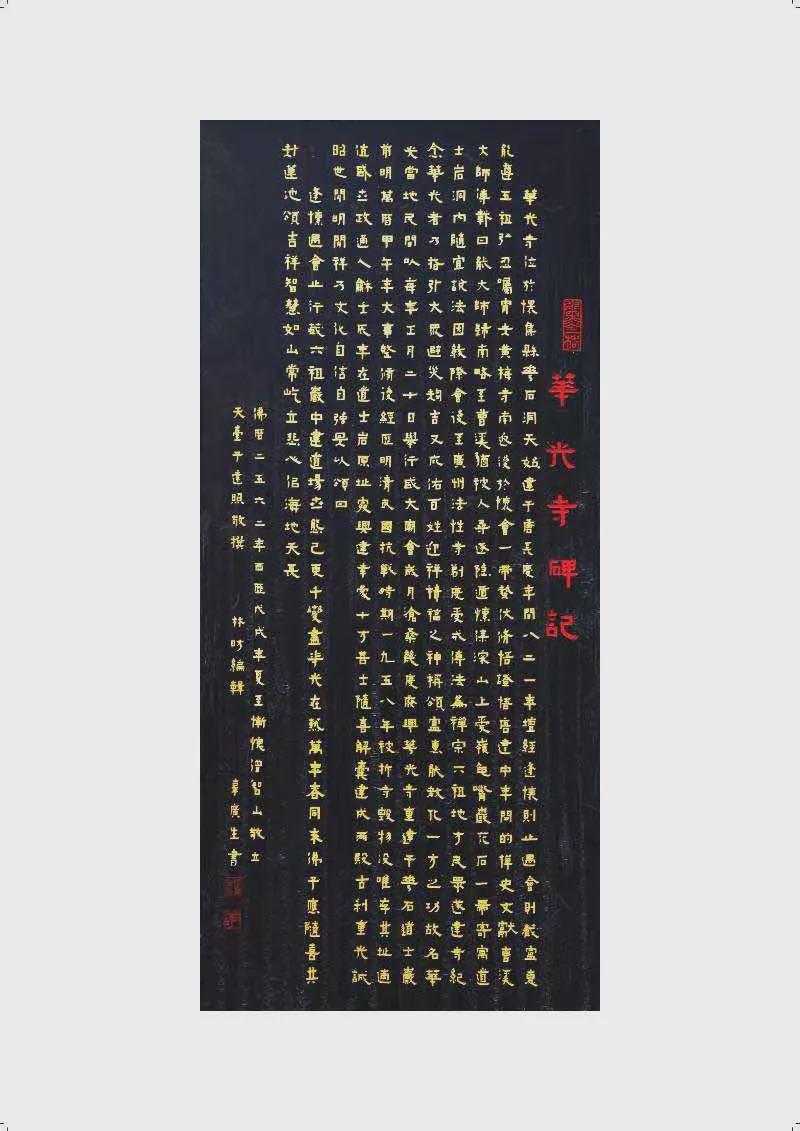 華光寺碑記
華光寺位於懷集縣花石洞天始建于唐長慶年間八二一年壇經逢懷則止遇會則藏盧惠
能遵五祖弘忍囑膺黃梅寺南返後於懷會一帶蟄伏修悟證悟唐達中年間的禪史文獻曹溪
大師傳載曰能大師歸南略至曹溪猶被人尋逐隱遁懷集深山上愛嶺龜嘴巖花石一帶寄寓道
士岩洞內隨宜說法因教際會後至廣州法性寺剃度受戒傳法為禪宗六祖地方民眾遂建寺紀
念華光者乃指引大眾避災趨吉又庇佑百姓迎祥積福之神稱頌盧惠能教化一方之功故名華
光當地民間以每年正月二十日舉行盛大廟會歲月滄桑幾度廢興華光寺重建于花石道士巖
前明萬曆甲午年大事整修後經歷明清民國抗戰時期一九五八年被拆寺毀物沒唯存其址適
值盛世政通人龢士民幸在道士岩原址復興建幸蒙十方善士隨喜解囊建成兩殿古刹重光誠
昭世間明開祥乃文化自信自強是以頌曰
逢懷遇會止行藏六祖巖中建道場世態已更千變盡華光在熱萬年春同來佛子應隨喜共
對蓮池頌吉祥智慧如山常屹立悲心似海地天長
佛曆二五六二年西曆戊戌年夏至慚愧僧智山敬立
天臺子達照敬撰 林時編輯 辜廣生書